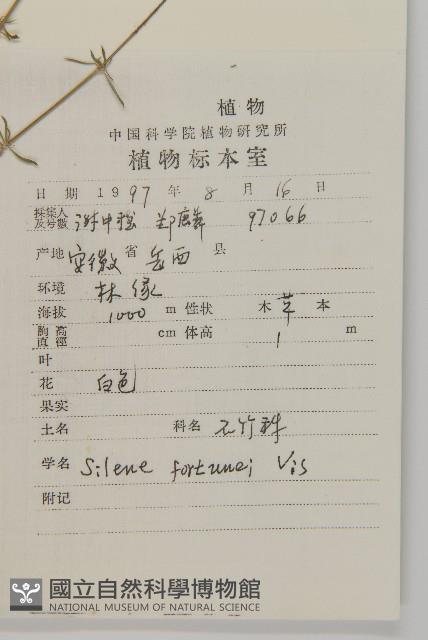 植物
中国科学院植物研究所
植物标本室
日期 1997 年 8 月 16 日
採集人及号数 谢中稳 郑麟 97066
产地 安徽 省 岳西 县
环境 林缘
海拔 1000 m 性状 木 草 本
胸高直徑 cm 体高 1 m
叶
花 白色
果实
土名 科名 石竹科
学名 Silene fortunei Vis
附记
國立自然科學博物館
NATIONAL MUSEUM OF NATURAL SCIENCE